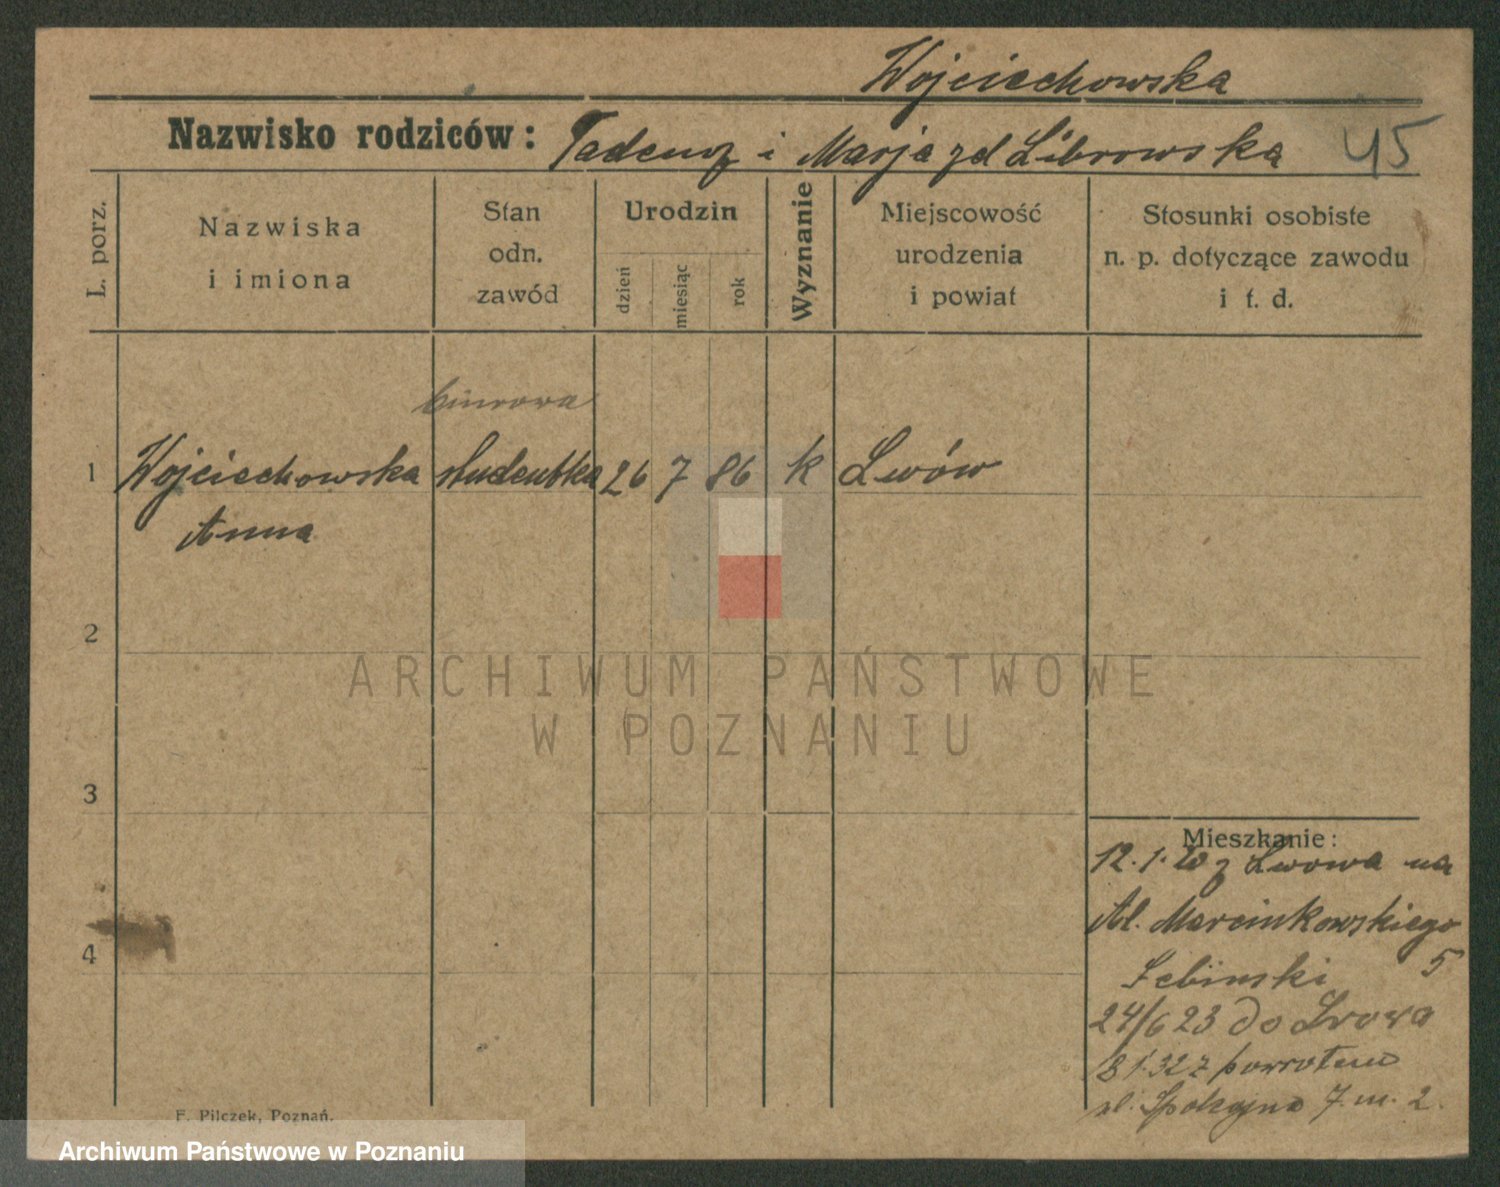 Wojciechowska
Nazwisko rodziców: Tadeusz i Marja zd Librowska 45
L. porz.
Nazwiska i imiona
Stan odn. zawód
Urodzin
dzień
miesiąc
rok
Wyznanie
Miejscowość urodzenia i powiat
Stosunki osobiste n. p. dotyczące zawodu i t. d.
biurowa
1 Wojciechowska studentka 26 7 86 k Lwów
Anna
2
ARCHIWUM PAŃSTWOWE
W POZNANIU
3
Mieszkanie:
12.1.20 z Lwowa na
Al. Marcinkowskiego
5
4
24/6 23 do Lwowa
8 1.32 z powrotem
ul. Spokojna 7 m. 2.
F. Pilczek, Poznań.
Archiwum Państwowe w Poznaniu